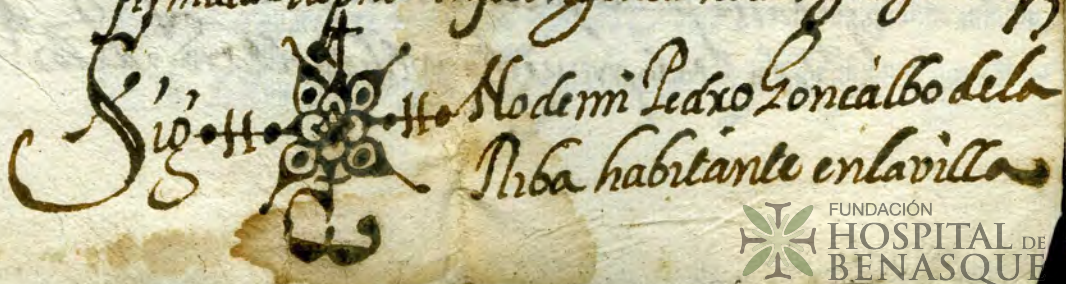 Sig No de mi Pedro Goncalbo de la
Riba habitante en la villa
FUNDACIÓN
HOSPITAL DE
BENASQUE